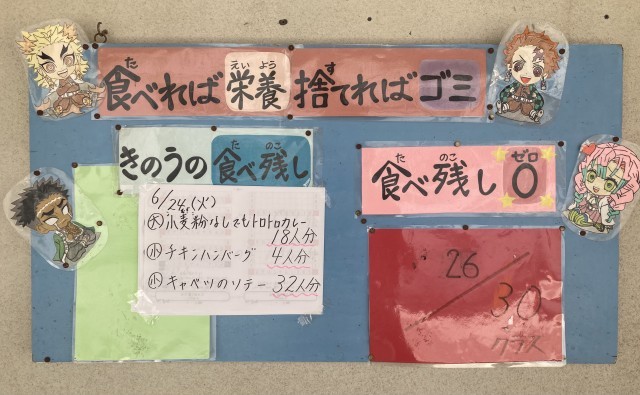 食べれば栄養捨てればゴミ
きのうの食べ残し
6/24(火)
大 小麦粉なしでもトロトロカレー
18人分
小 チキンハンバーグ 4人分
小 キャベツのソテー 32人分
食べ残し0
26/30
クラス